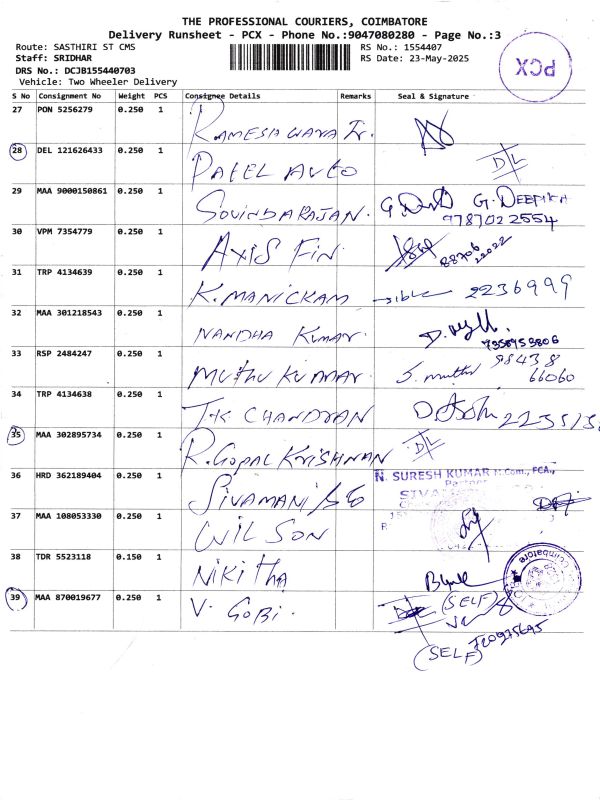 THE PROFESSIONAL COURIERS, COIMBATORE
Delivery Runsheet - PCX - Phone No.:9047080280 - Page No.:3
Route: SASTHIRI ST CMS RS No.: 1554407
Staff: SRIDHAR RS Date: 23-May-2025
DRS No.: DCJB155440703
Vehicle: Two Wheeler Delivery
PCX
S No Consignment No Weight PCS Consignee Details Remarks Seal & Signature
27 PON 5256279 0.250 1
28 DEL 121626433 0.250 1 PATEL AUTO D/L
29 MAA 9000150861 0.250 1 GOVINDARAJAN. G. DEEPIKA
9787022554
30 VPM 7354779 0.250 1 AXIS FIN. 88706
22022
31 TRP 4134639 0.250 1 K. MANICKAM 2236999
32 MAA 301218543 0.250 1 NANDHA KUMAR.
7358953806
33 RSP 2484247 0.250 1 MUTHU KUMAR. S. muthu 98438
66060
34 TRP 4134638 0.250 1 T.K CHANDRAN
35 MAA 302895734 0.250 1 R. GOPAL KRISHNAN D/L
36 HRD 362189404 0.250 1 SIVAMANI N. SURESH KUMAR M.Com., FCA.,
Partner
37 MAA 108053330 0.250 1 WILSON
38 TDR 5523118 0.150 1 NIKITHA
Coimbatore
39 MAA 870019677 0.250 1 V. GOBI. (SELF)
(SELF)